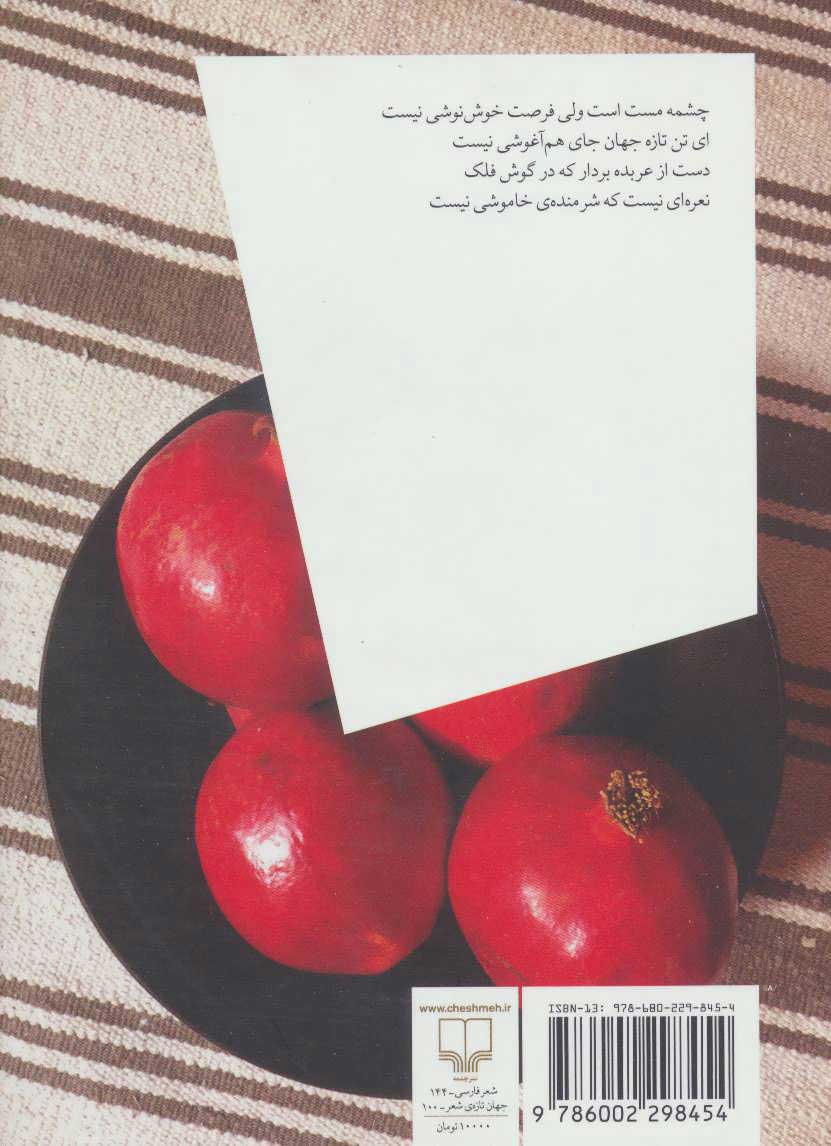 چشمه مست است ولی فرصت خوش‌نوشی نیست
ای تن تازه جهان جای هم‌آغوشی نیست
دست از عربده بردار که در گوش فلک
نعره‌ای نیست که شرمنده‌ی خاموشی نیست
www.cheshmeh.ir
نشر چشمه
شعر فارسی - ۱۴۴
جهان تازه‌ی شعر - ۱۰۰
۱۰۰۰۰ تومان
ISBN-13: 978-680-229-845-4
9 786002 298454